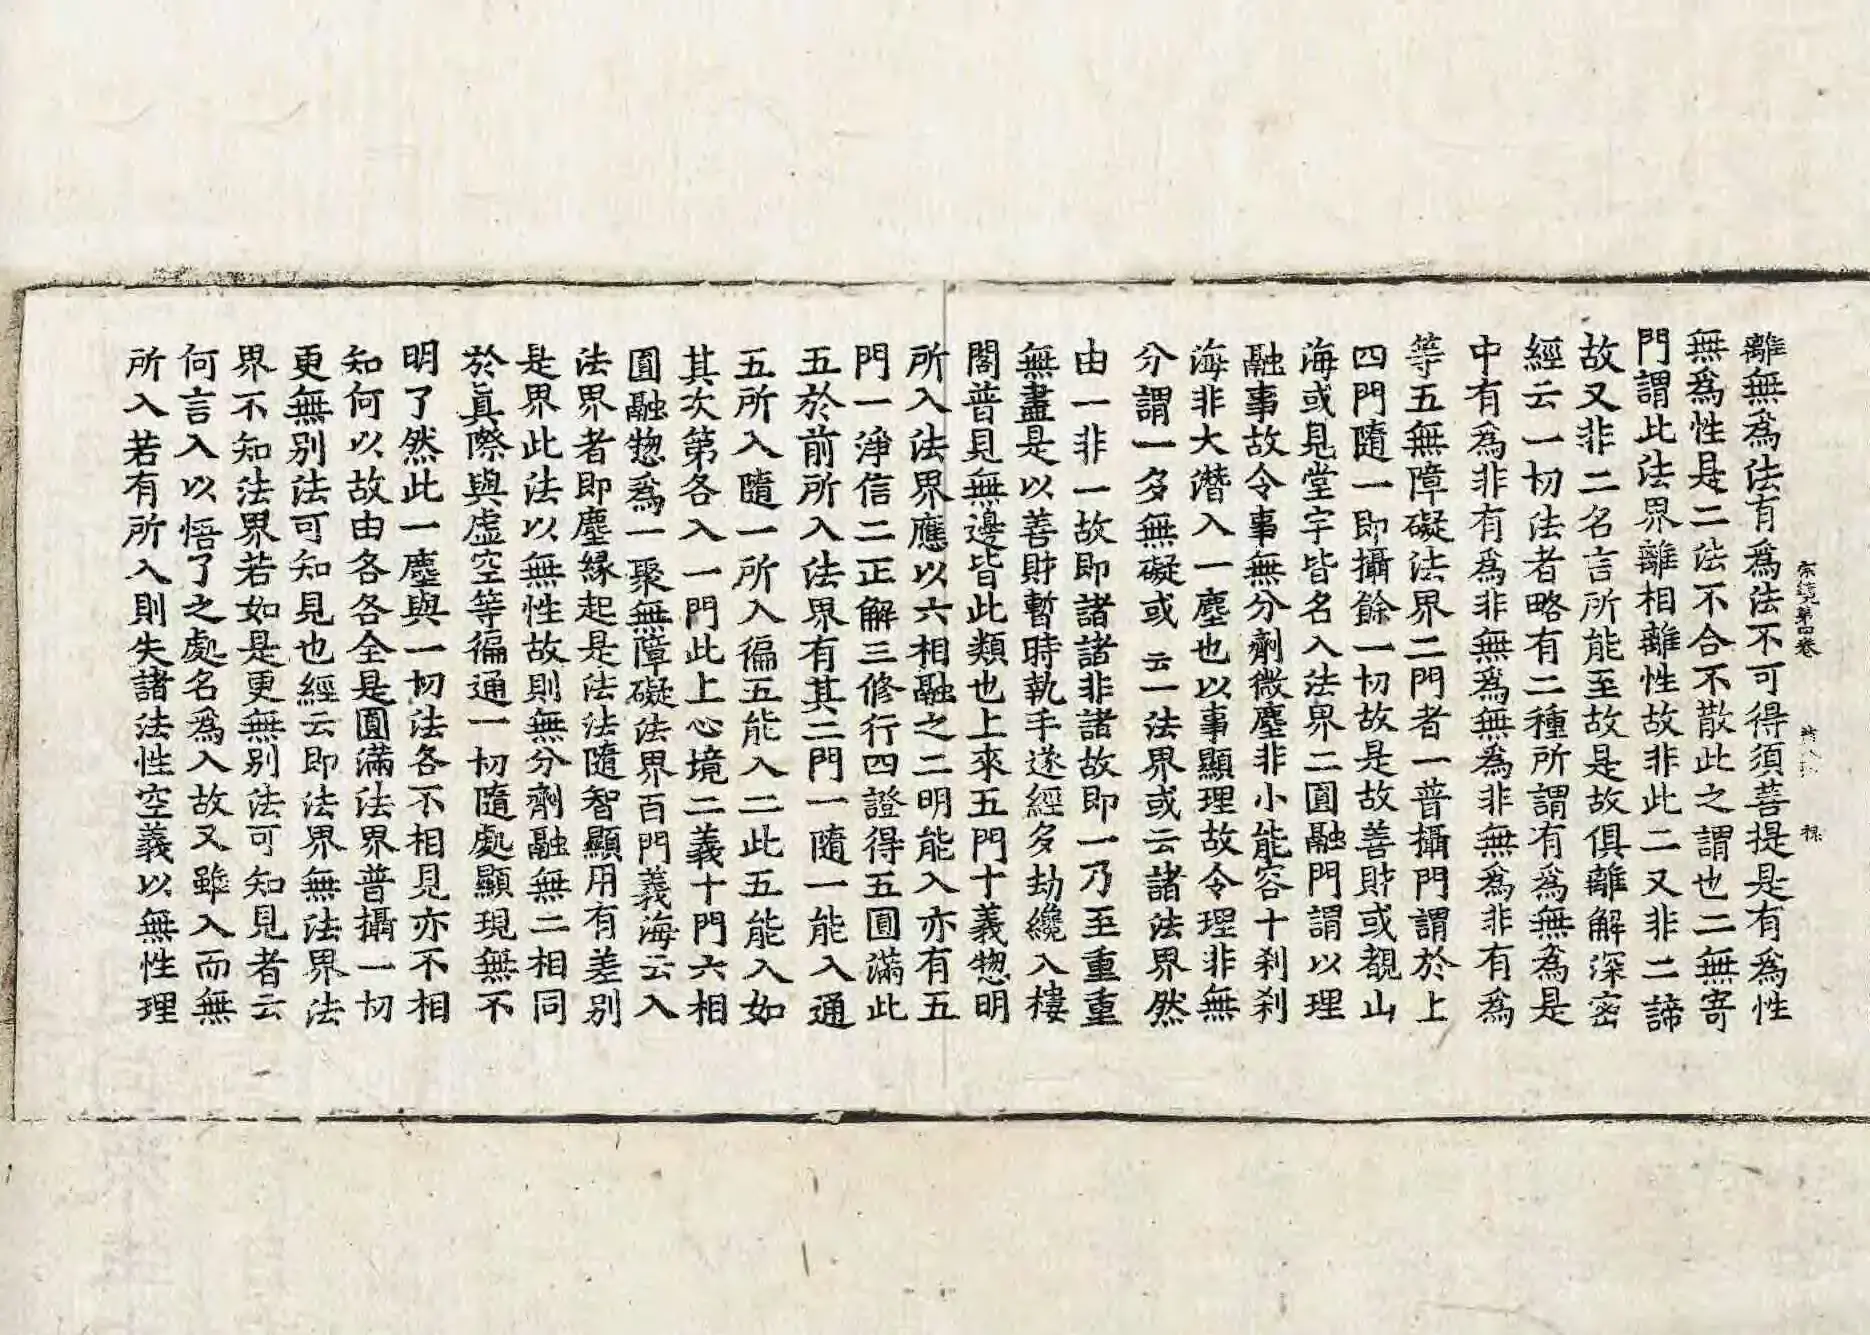 宗鏡第四卷
離無為法有為法不可得須菩提是有為性
無為性是二法不合不散此之謂也二無寄
門謂此法界離相離性故非此二又非二諦
故又非二名言所能至故是故俱離解深密
經云一切法者略有二種所謂有為無為是
中有為非有為非無為無為非無為非有為
等五無障礙法界二門者一普攝門謂於上
四門隨一即攝餘一切故是故善財或覩山
海或見堂宇皆名入法界二圓融門謂以理
融事故令事無分劑微塵非小能容十刹刹
海非大潛入一塵也以事顯理故令理非無
分謂一多無礙或云一法界或云諸法界然
由一非一故即諸諸非諸故即一乃至重重
無盡是以善財暫時執手遂經多劫纔入樓
閣普見無邊皆此類也上來五門十義惣明
所入法界應以六相融之二明能入亦有五
門一淨信二正解三修行四證得五圓滿此
五於前所入法界有其二門一隨一能入通
五所入隨一所入徧五能入二此五能入如
其次第各入一門此上心境二義十門六相
圓融惣為一聚無障礙法界百門義海云入
法界者即塵緣起是法法隨智顯用有差別
是界此法以無性故則無分劑融無二相同
於真際與虛空等徧通一切隨處顯現無不
明了然此一塵與一切法各不相見亦不相
知何以故由各各全是圓滿法界普攝一切
更無別法可知見也經云即法界無法界法
界不知法界若如是更無別法可知見者云
何言入以悟了之處名為入故又雖入而無
所入若有所入則失諸法性空義以無性理